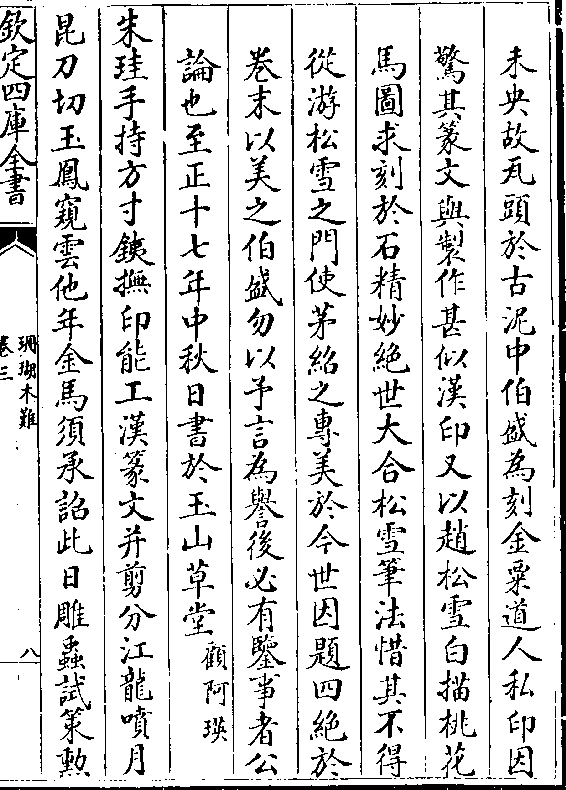 未央故瓦頭於古泥中伯盛為刻金粟道人私印因
驚其篆文與製作甚似漢印又以趙松雪白描桃花
馬圖求刻於石精妙絶世大合松雪筆法惜其不得
從游松雪之門使茅紹之專美於今世因題四絶於
卷末以美之伯盛勿以予言為譽後必有鑒事者公
論也至正十七年中秋日書於玉山草堂 顧阿瑛
朱珪手持方寸鐡撫印能工漢篆文并剪分江龍噴月
昆刀切玉鳳窺雲他年金馬須承詔此日雕蟲試策勲
欽定四庫全書
珊瑚木難
卷三
八